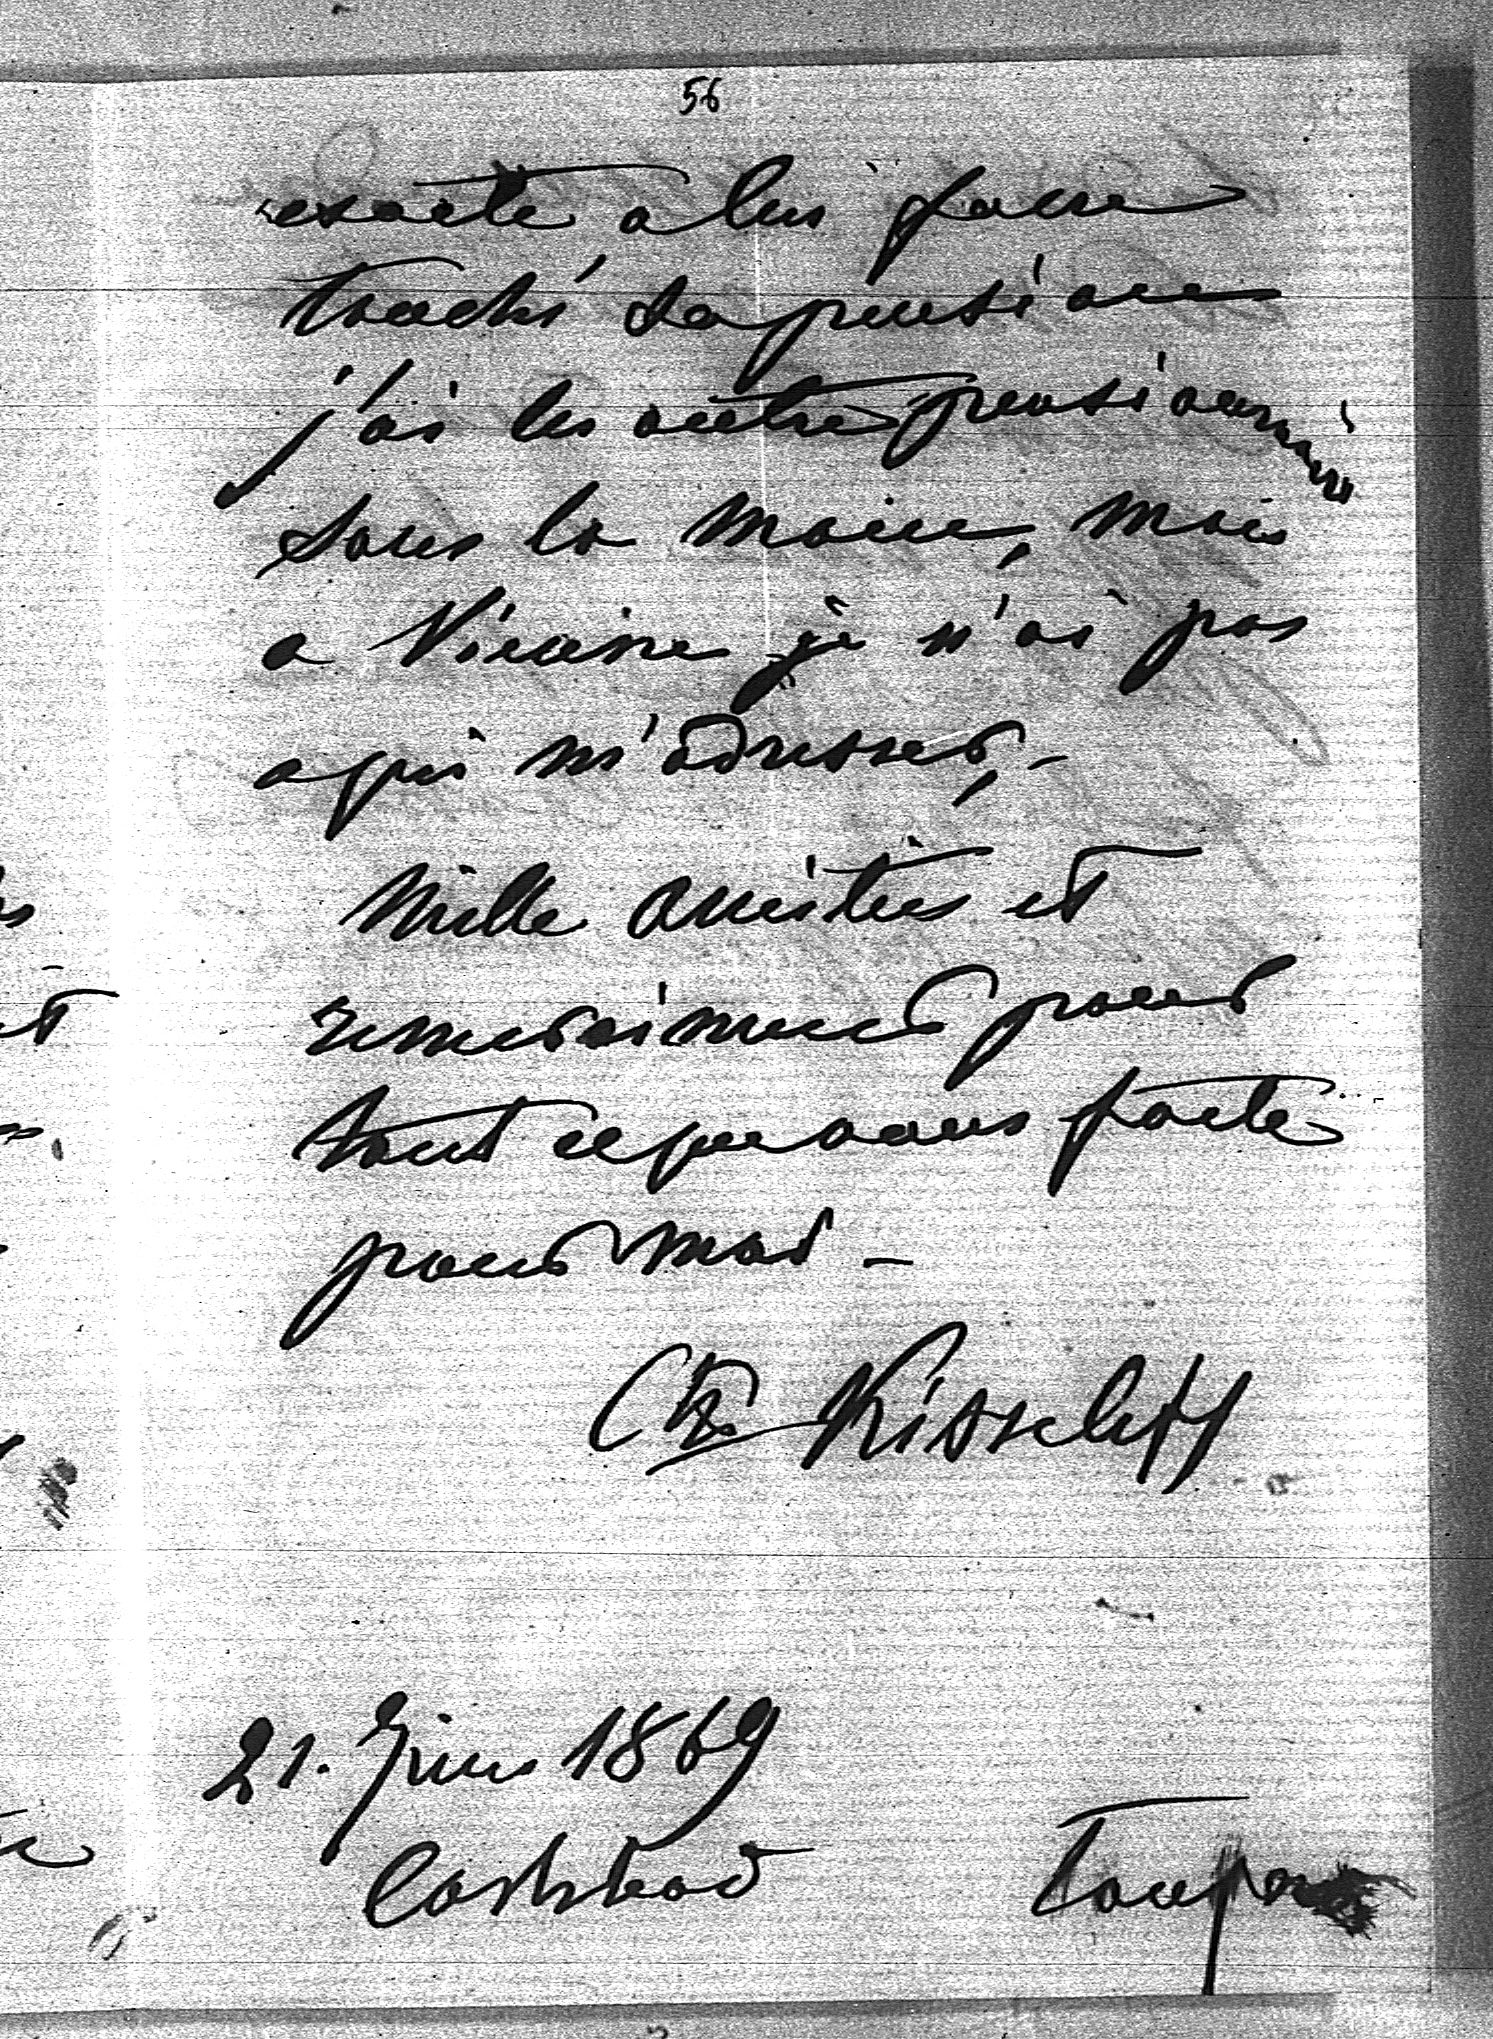 56
exacte a lui faire
touché sa pension
j'ai les autre pensionnaires
sous la main, mais
a Vienne je n'ai pas
a qui m'adresser,-
Mille amitiés et
remerciment pour
tout ce que vous faite
pour moi -
Ctsse Kisseleff
21. Juin 1869
Carlsbad